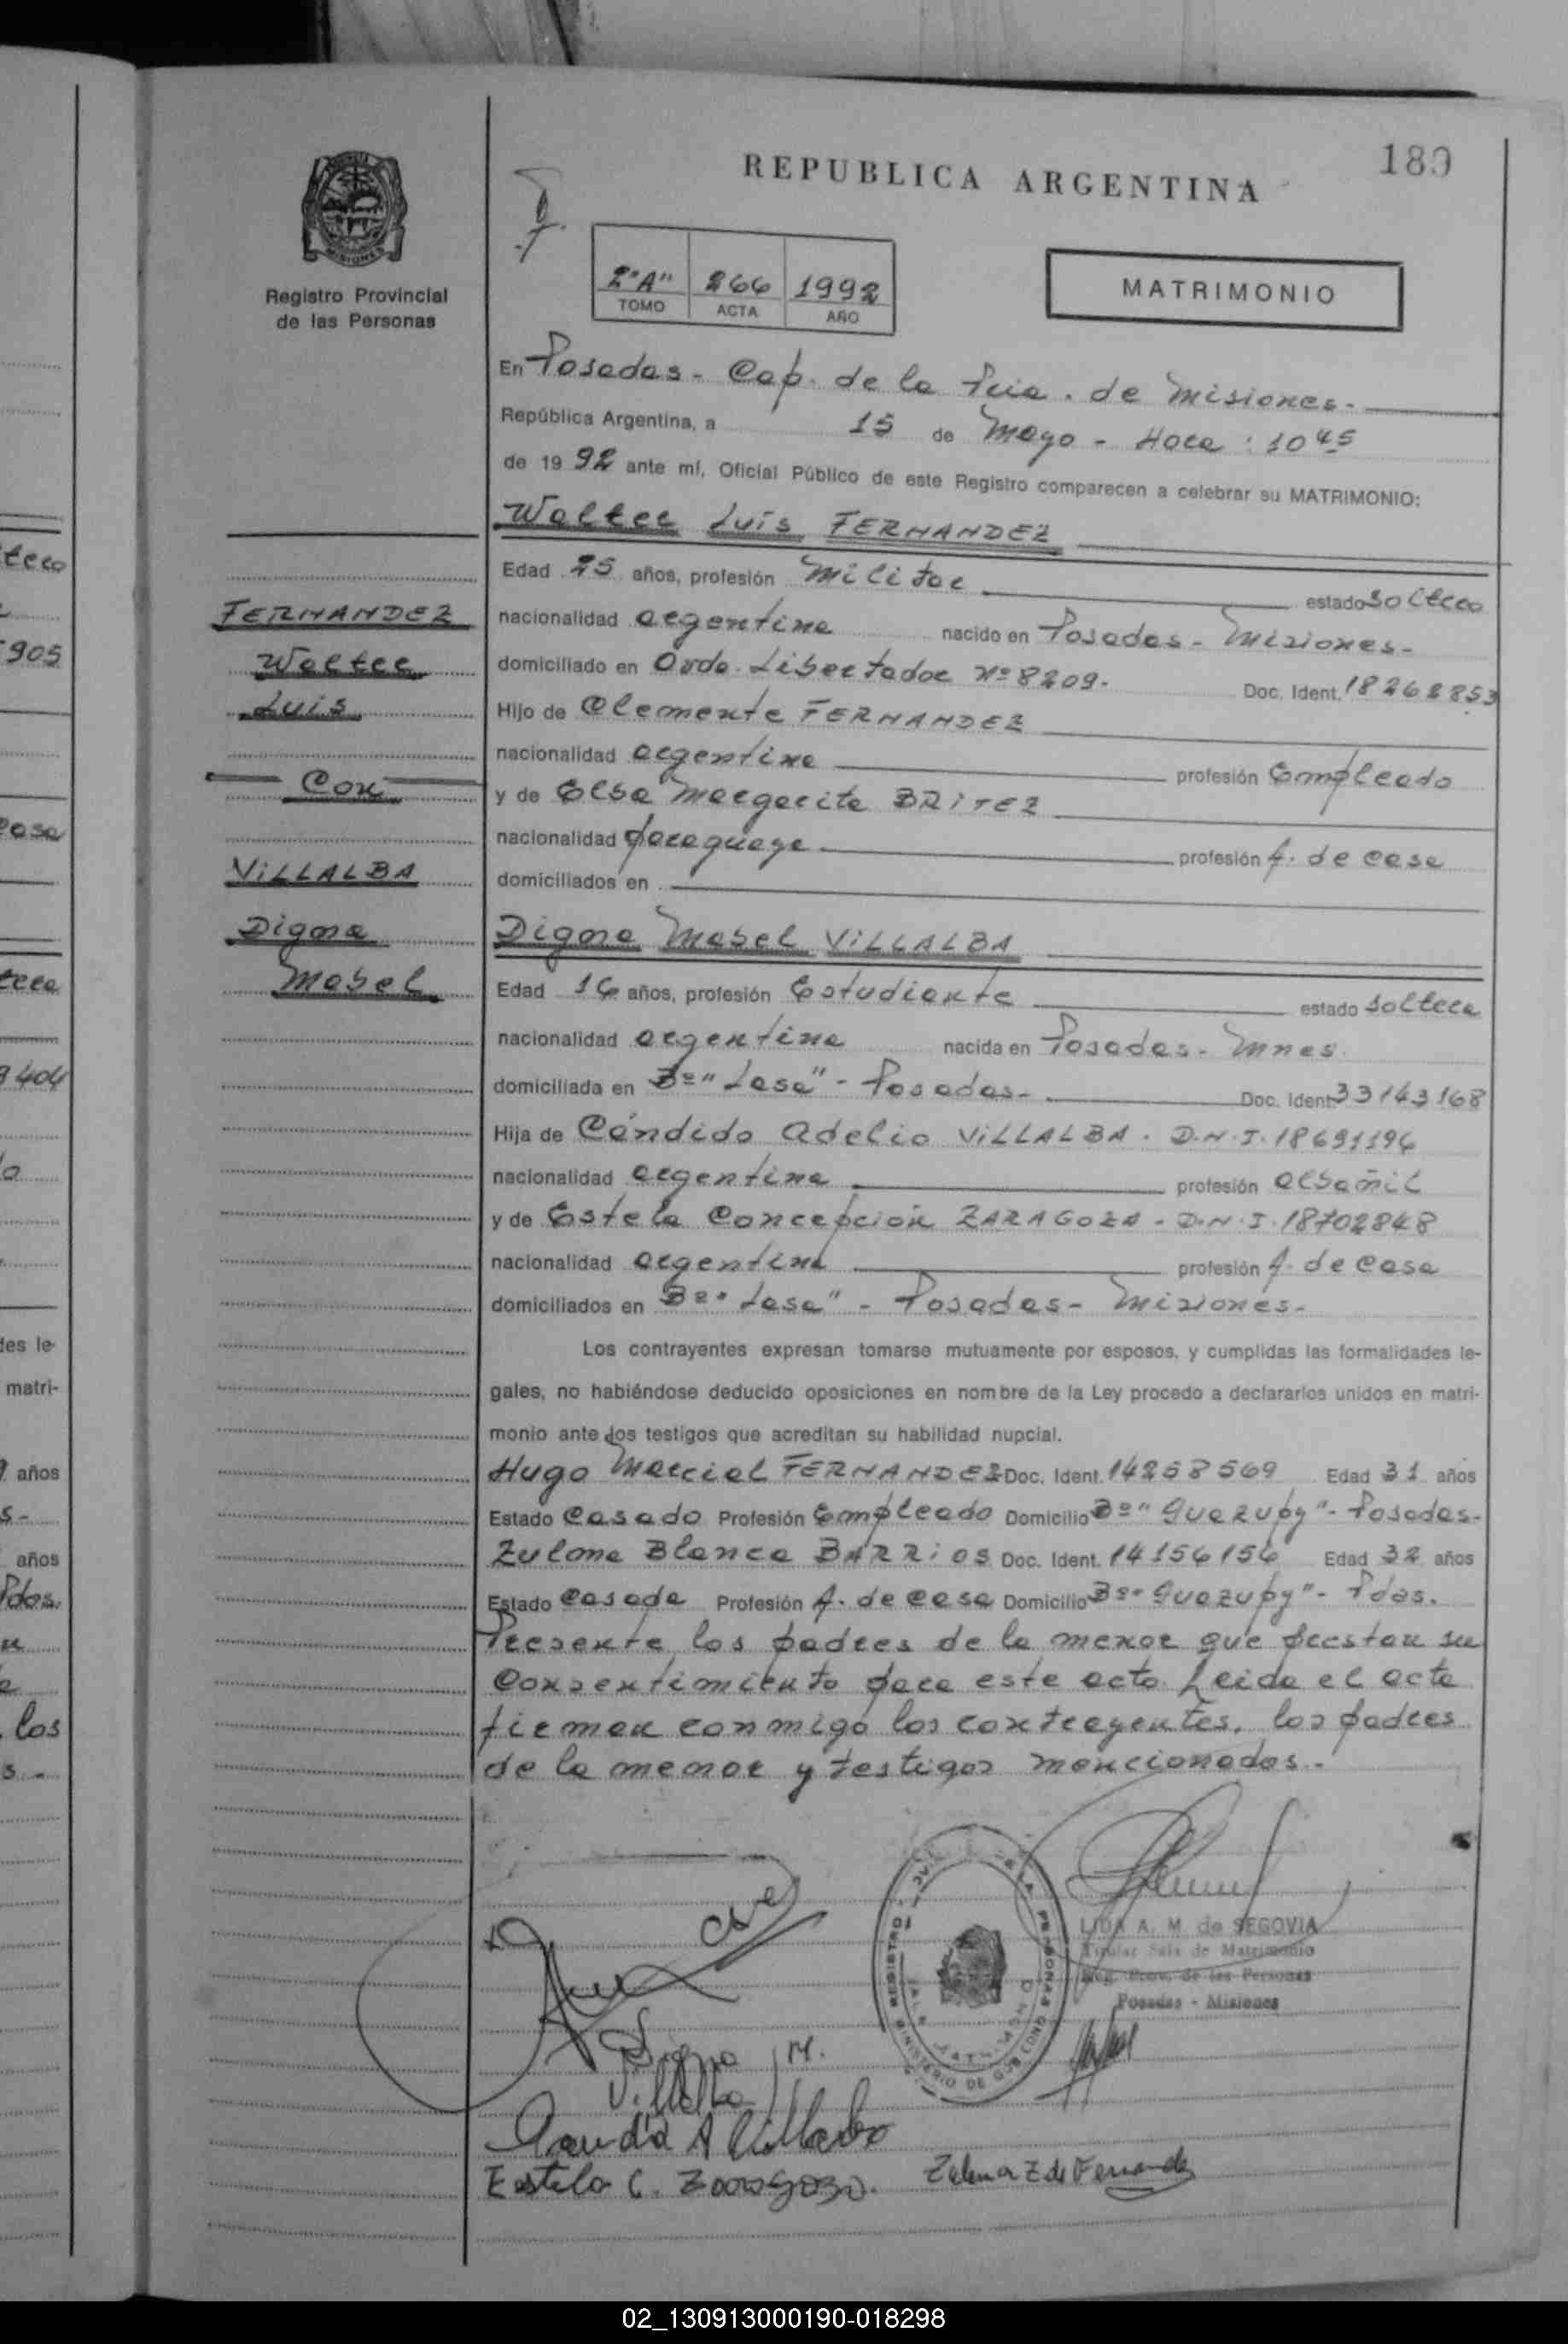 180
REPUBLICA ARGENTINA
MISIONES
Registro Provincial
de las Personas
2"A" 266 1992
TOMO ACTA AÑO
MATRIMONIO
En Posadas - Cap. de la Pcia. de Misiones.-
República Argentina, a 15 de Mayo - Hora: 10 45
de 19 92 ante mí, Oficial Público de este Registro comparecen a celebrar su MATRIMONIO:
Walter Luis FERNANDEZ
Edad 25 años, profesión Militar estado soltero
nacionalidad argentina nacido en Posadas - Misiones-
domiciliado en Avda. Libertador Nº 8209. Doc. Ident. 18262853
Hijo de Clemente FERNANDEZ
nacionalidad argentina profesión Empleado
y de Elsa Margarita BRITEZ
nacionalidad paraguaya profesión A. de casa
domiciliados en
Digna Mabel VILLALBA
Edad 16 años, profesión Estudiante estado soltera
nacionalidad argentina nacida en Posadas - Mnes.
domiciliada en Bº "Lasa" - Posadas- Doc. Ident. 33143168
Hija de Cándido Adelio VILLALBA - D.N.I. 18691196
nacionalidad argentina profesión albañil
y de Estela Concepción ZARAGOZA - D.N.I. 18702848
nacionalidad argentina profesión A. de casa
domiciliados en Bº "Lasa" - Posadas - Misiones-
Los contrayentes expresan tomarse mutuamente por esposos, y cumplidas las formalidades le-
gales, no habiéndose deducido oposiciones en nombre de la Ley procedo a declararlos unidos en matri-
monio ante los testigos que acreditan su habilidad nupcial.
Hugo Marcial FERNANDEZ Doc. Ident. 14258569 Edad 31 años
Estado Casado Profesión Empleado Domicilio Bº "Guazupy" - Posadas-
Zulma Blanca BARRIOS Doc. Ident. 14156156 Edad 32 años
Estado Casada Profesión A. de casa Domicilio Bº "Guazupy" - Pdas.
Presente los padres de la menor que prestan su
consentimiento para este acto. Leida el acta
firman conmigo los contrayentes, los padres
de la menor y testigos mencionados.-
FERNANDEZ
Walter
Luis
Con
VILLALBA
Digna
Mabel
LIDA A. M. de SEGOVIA
Titular Sala de Matrimonio
Reg. Prov. de las Personas
Posadas - Misiones
Digna M.
Villalba
A Villalba
Estela C. Zaragoza.
02_130913000190-018298